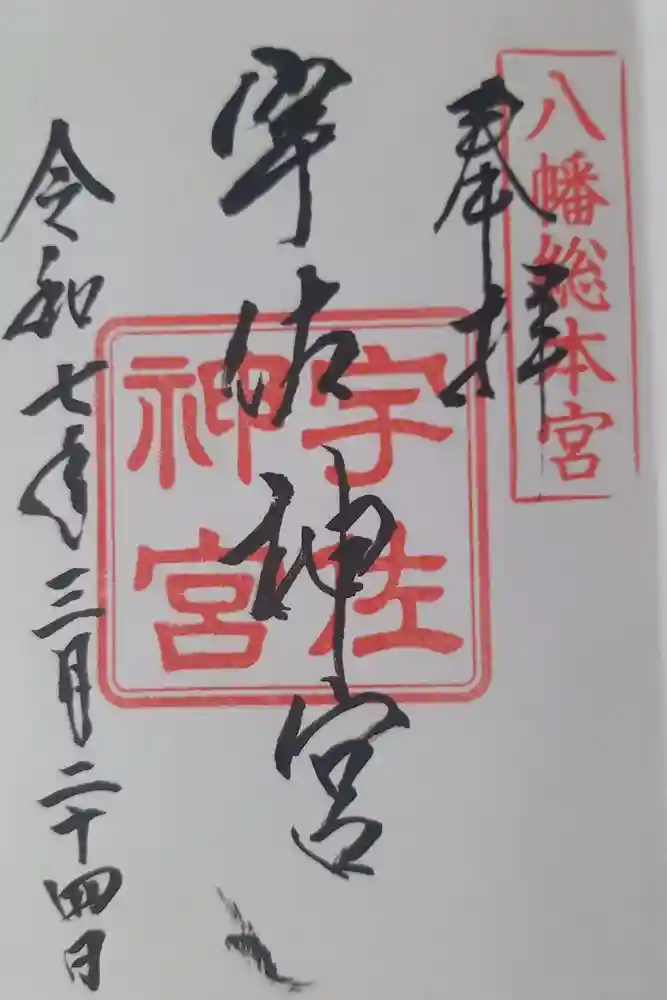 八幡総本宮
奉拝
宇佐神宮
宇佐
神宮
令和七年三月二十四日